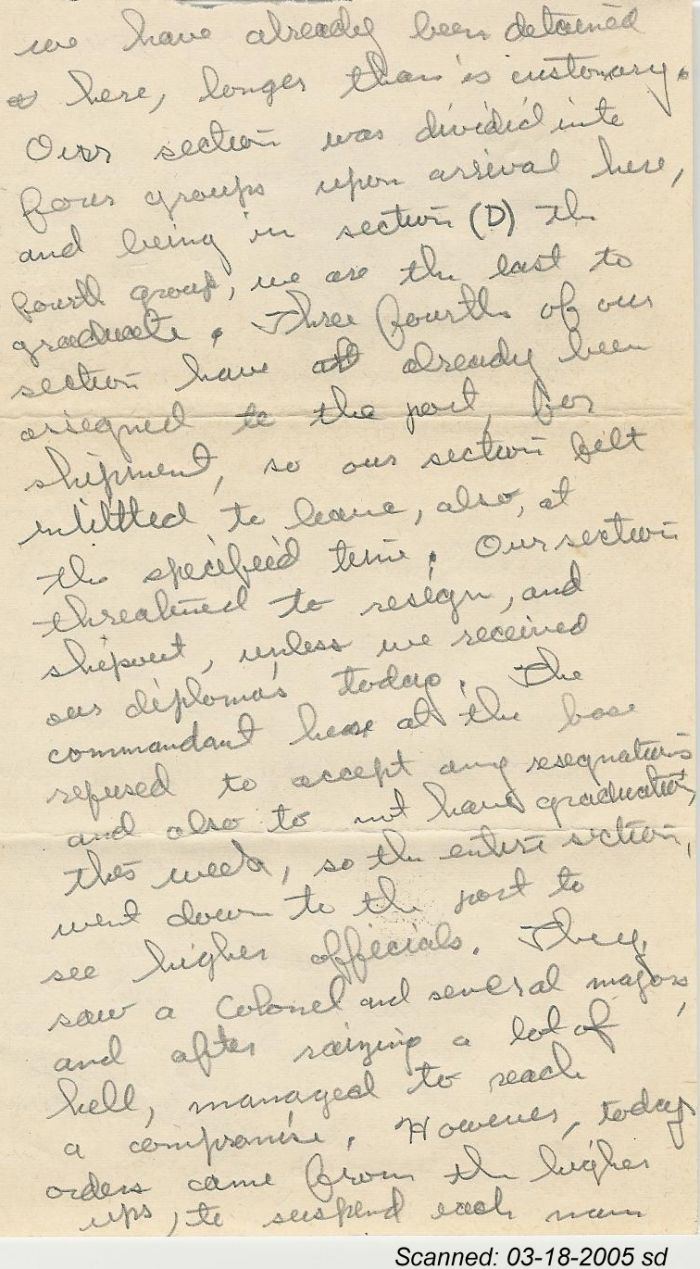 we have already been detained
here, longer than is customary.
Our section was divided into
four groups upon arrival here,
and being in section (D) the
fourth group, we are the last to
graduate. Three fourths of our
section have already been
assigned to the port, for
shipment, so our section felt
intittled to leave, also, at
the specified time. Our section
threatened to resign, and
shipout, unless we received
our diploma's today. The
commandant here at the base
refused to accept any resegnations
and also to not have graduation,
this week, so the entire section,
went down to the port to
see higher officials. They
saw a Colonel and several majors,
and after raizing a lot of
hell, managed to reach
a compromise. However, today
orders came from the higher
ups, to suspend each man
Scanned: 03-18-2005 sd